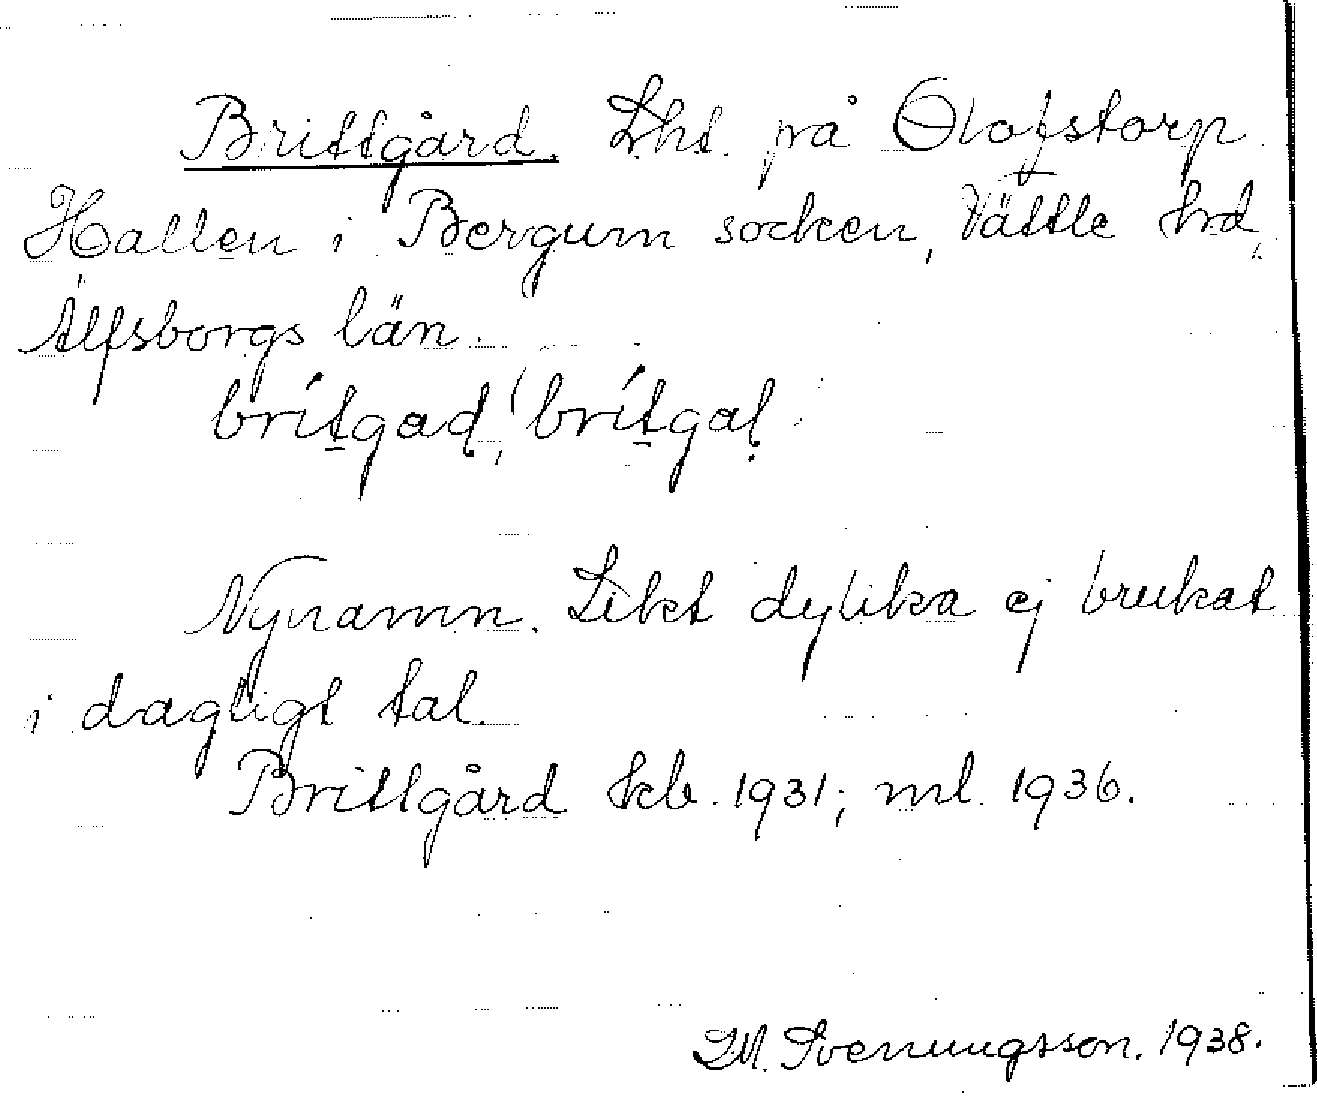 Brittgård. Lht. på Olofstorp
Hallen i Bergum socken, Vättle hd,
Älfsborgs län.
brítgad, brítgaḷ
Nynamn. Likt dylika ej brukat
i dagligt tal.
Brittgård kb. 1931; ml. 1936.
Svenungsson. 1938.